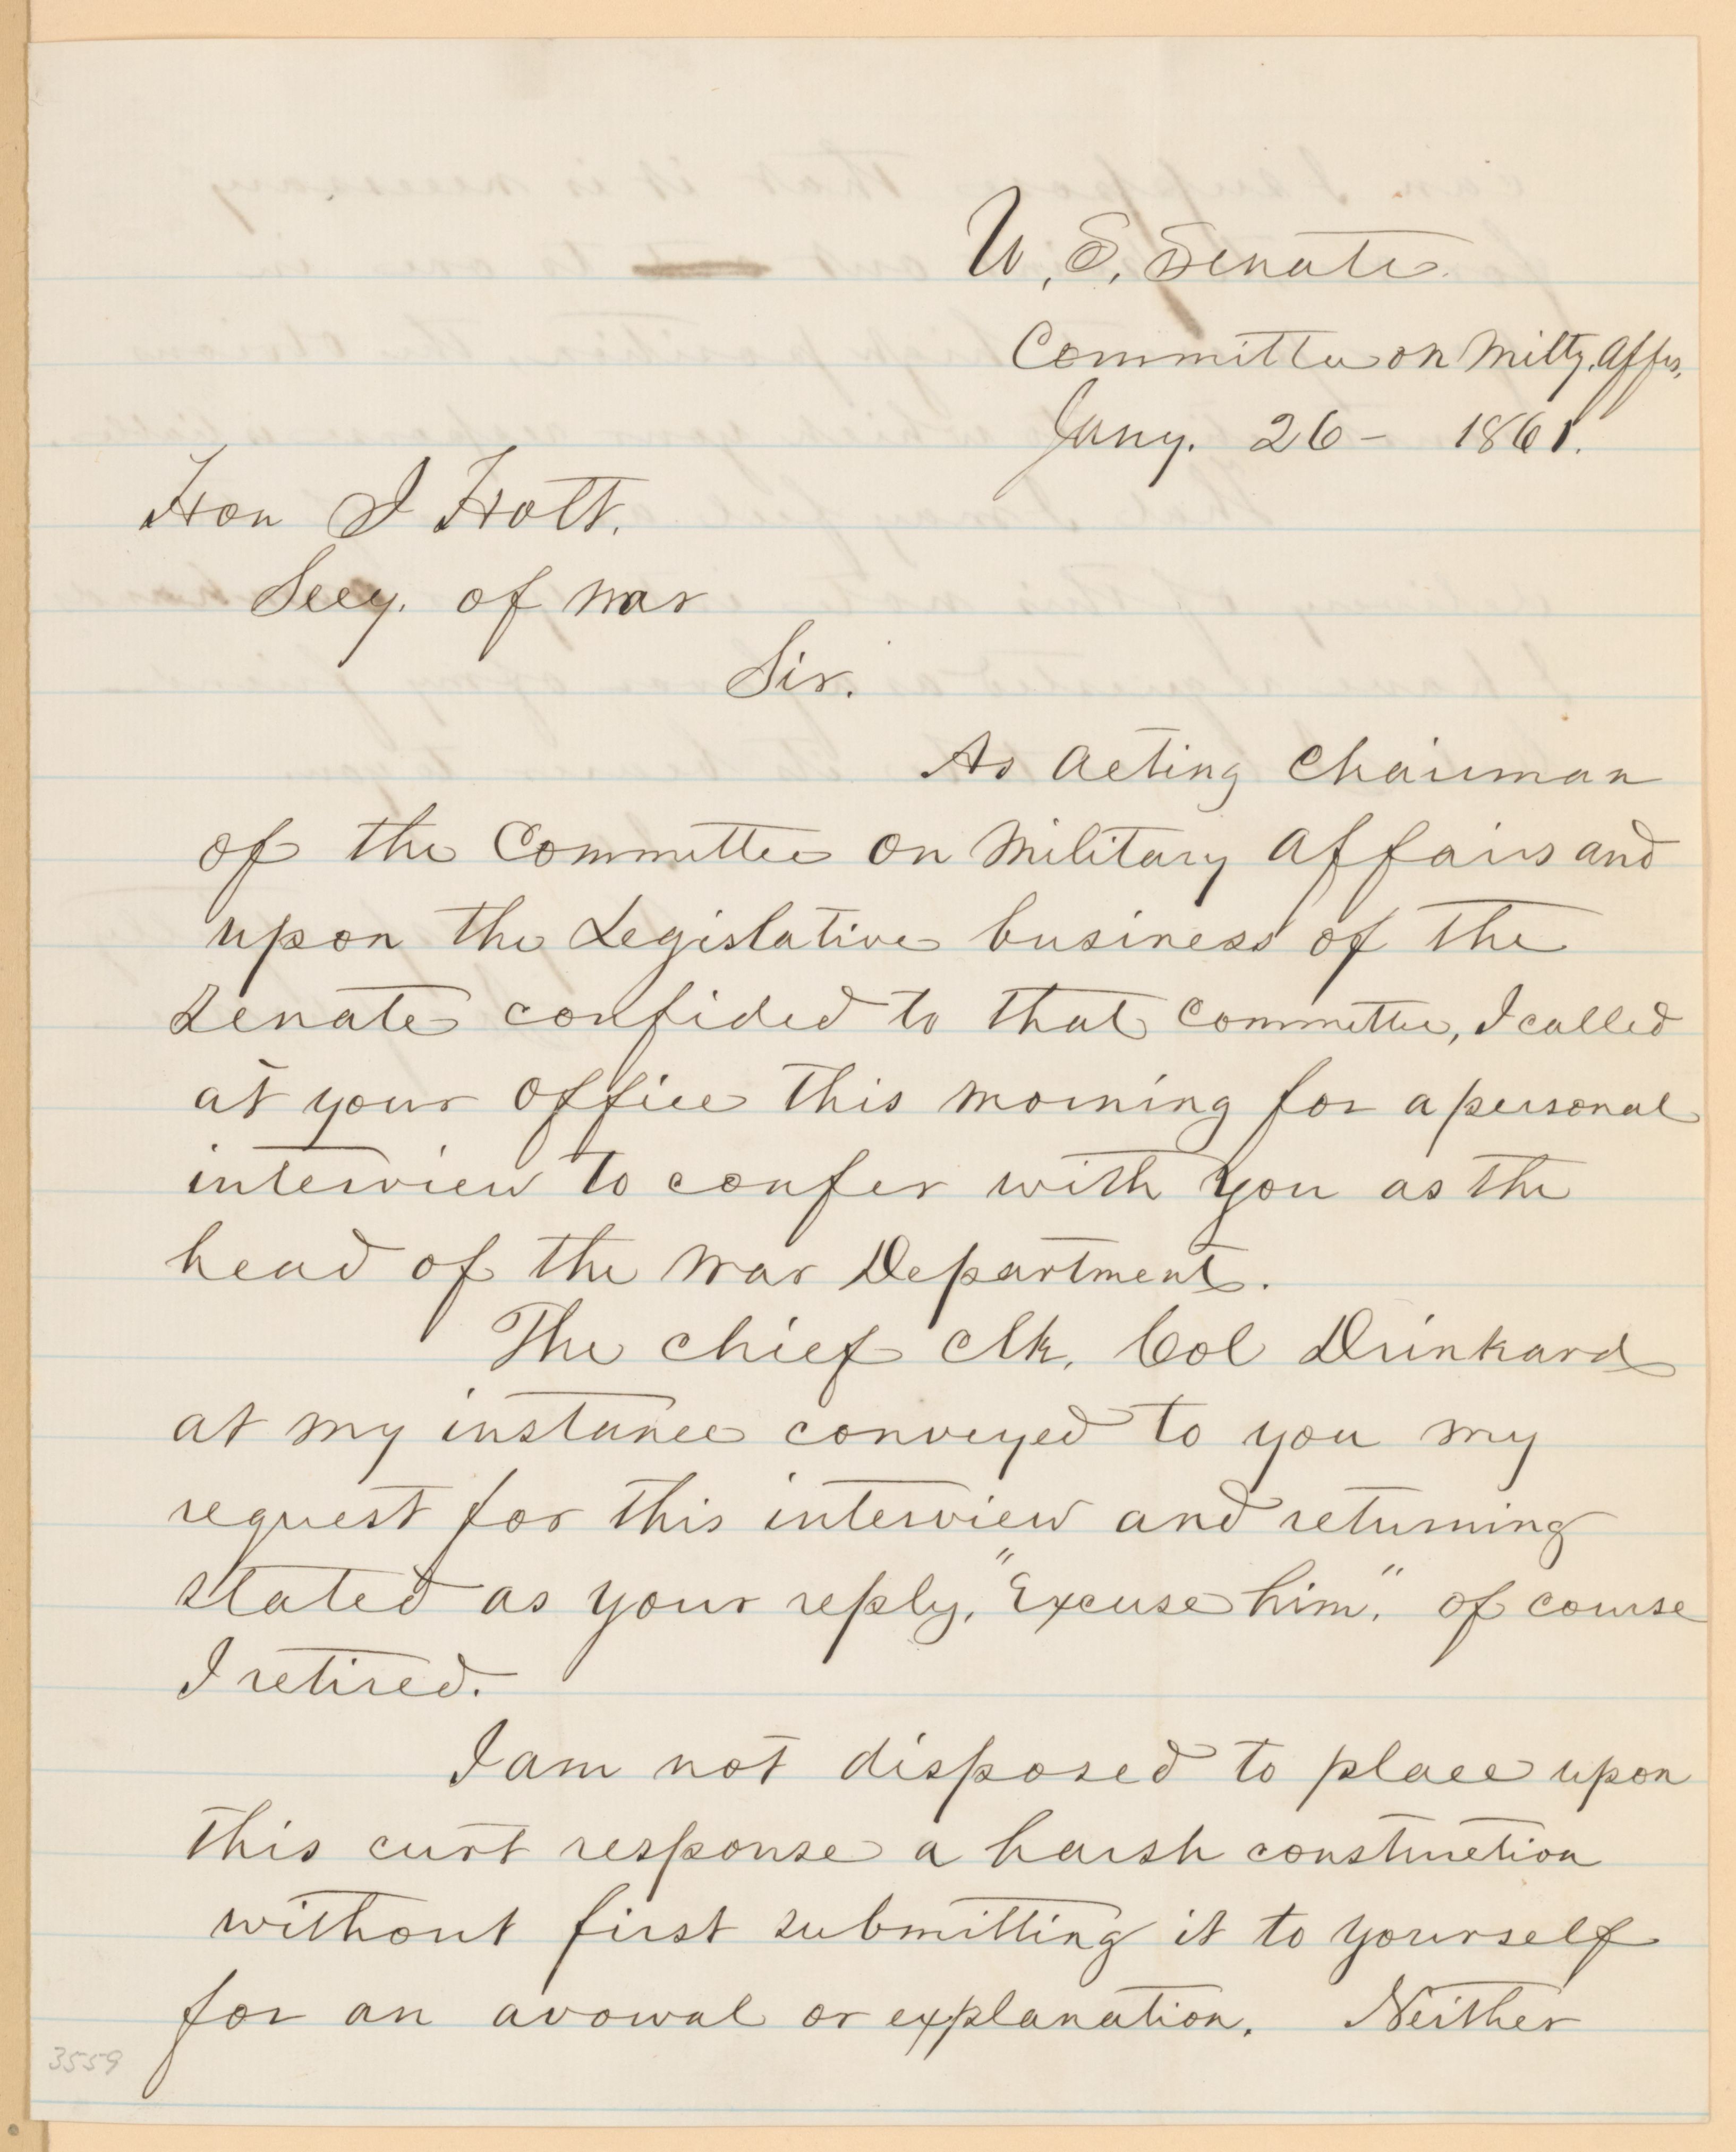 U. S. Senate
Committee on Milty. Affrs.
Jany. 26 - 1861.
Hon J Holt.
Secy. of War
Sir.
As Acting Chairman
of the Committee on Military Affairs and
upon the Legislative business of the
Senate confided to that Committee, I called
at your Office this morning for a personal
interview to confer with you as the
head of the War Department.
The chief clk, Col Drinkard
at my instance conveyed to you my
request for this interview and returning
stated as your reply, "Excuse him." of course
I retired.
I am not disposed to place upon
this curt response a harsh construction
without first submitting it to yourself
for an avowal or explanation. Neither
3559